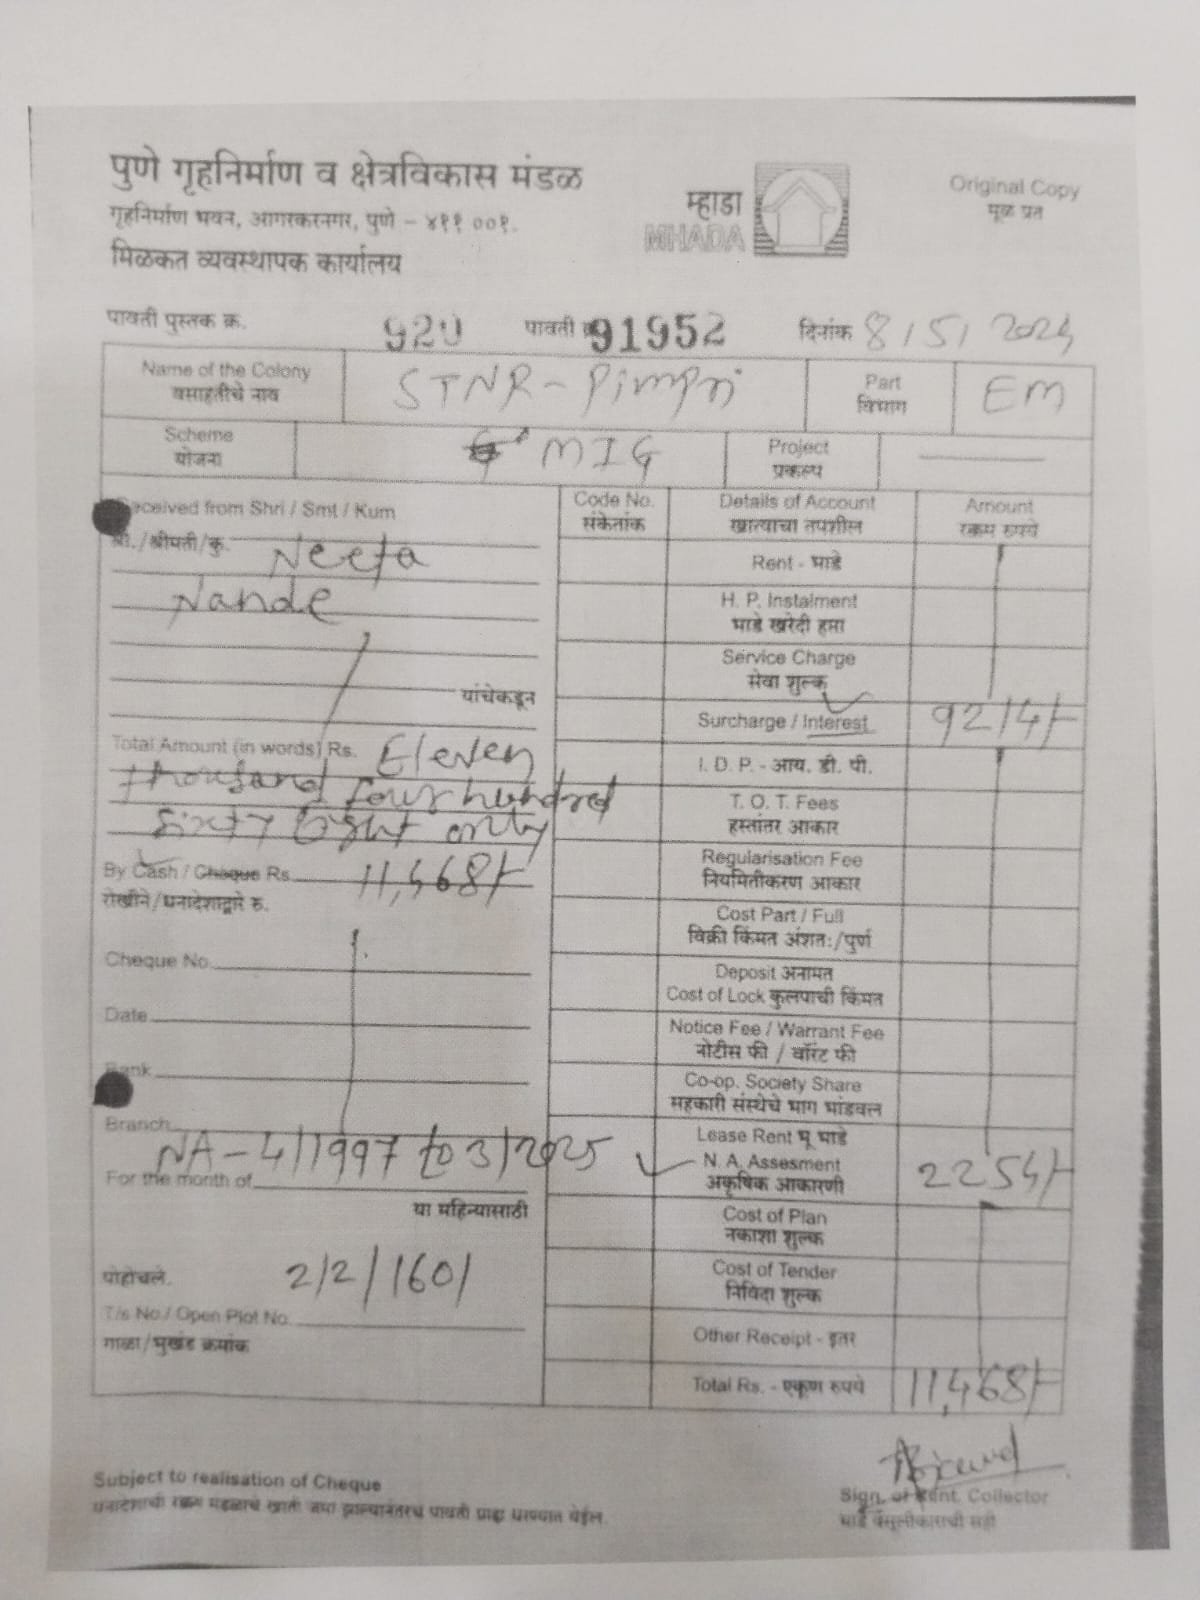 पुणे गृहनिर्माण व क्षेत्रविकास मंडळ
गृहनिर्माण भवन, आगरकरनगर, पुणे – ४११ ००१.
मिळकत व्यवस्थापक कार्यालय
म्हाडा
MHADA
Original Copy
मूळ प्रत
पावती पुस्तक क्र. 920 पावती 91952 दिनांक 8/5/2024
Name of the Colony STNR - Pimpri Part EM
वसाहतीचे नाव विभाग
Scheme MIG Project
योजना प्रकल्प
Received from Shri / Smt / Kum
श्री./श्रीमती/कु. Neeta
Nande
यांचेकडून
Total Amount (in words) Rs. Eleven
thousand four hundred
sixty Eight only
By Cash / Cheque Rs. 11,468/-
रोखीने/धनादेशाद्वारे रु.
Cheque No.
Date
Bank
Branch
NA - 4/1997 to 3/2025
For the month of
या महिन्यासाठी
पोहोचले. 2/2/160/
T/s No./ Open Plot No.
गाळा/भुखंड क्रमांक
Code No. Details of Account Amount
संकेतांक खात्याचा तपशील रक्कम रुपये
Rent - भाडे
H. P. Instalment
भाडे खरेदी हप्ता
Service Charge
सेवा शुल्क
Surcharge / Interest 9214/-
I. D. P. - आय. डी. पी.
T. O. T. Fees
हस्तांतर आकार
Regularisation Fee
नियमितीकरण आकार
Cost Part / Full
विक्री किंमत अंशतः/पुर्ण
Deposit अनामत
Cost of Lock कुलपाची किंमत
Notice Fee / Warrant Fee
नोटीस फी / वॉरंट फी
Co-op. Society Share
सहकारी संस्थेचे भाग भांडवल
Lease Rent भू भाडे
N. A. Assesment 2254/-
अकृषिक आकारणी
Cost of Plan
नकाशा शुल्क
Cost of Tender
निविदा शुल्क
Other Receipt - इतर
Total Rs. - एकूण रुपये 11,468/-
Subject to realisation of Cheque
धनादेशाची रक्कम मंडळाचे खाती जमा झाल्यानंतरच पावती ग्राह्य धरण्यात येईल.
Sign. of Rent. Collector
भाडे वसुलीकाराची सही